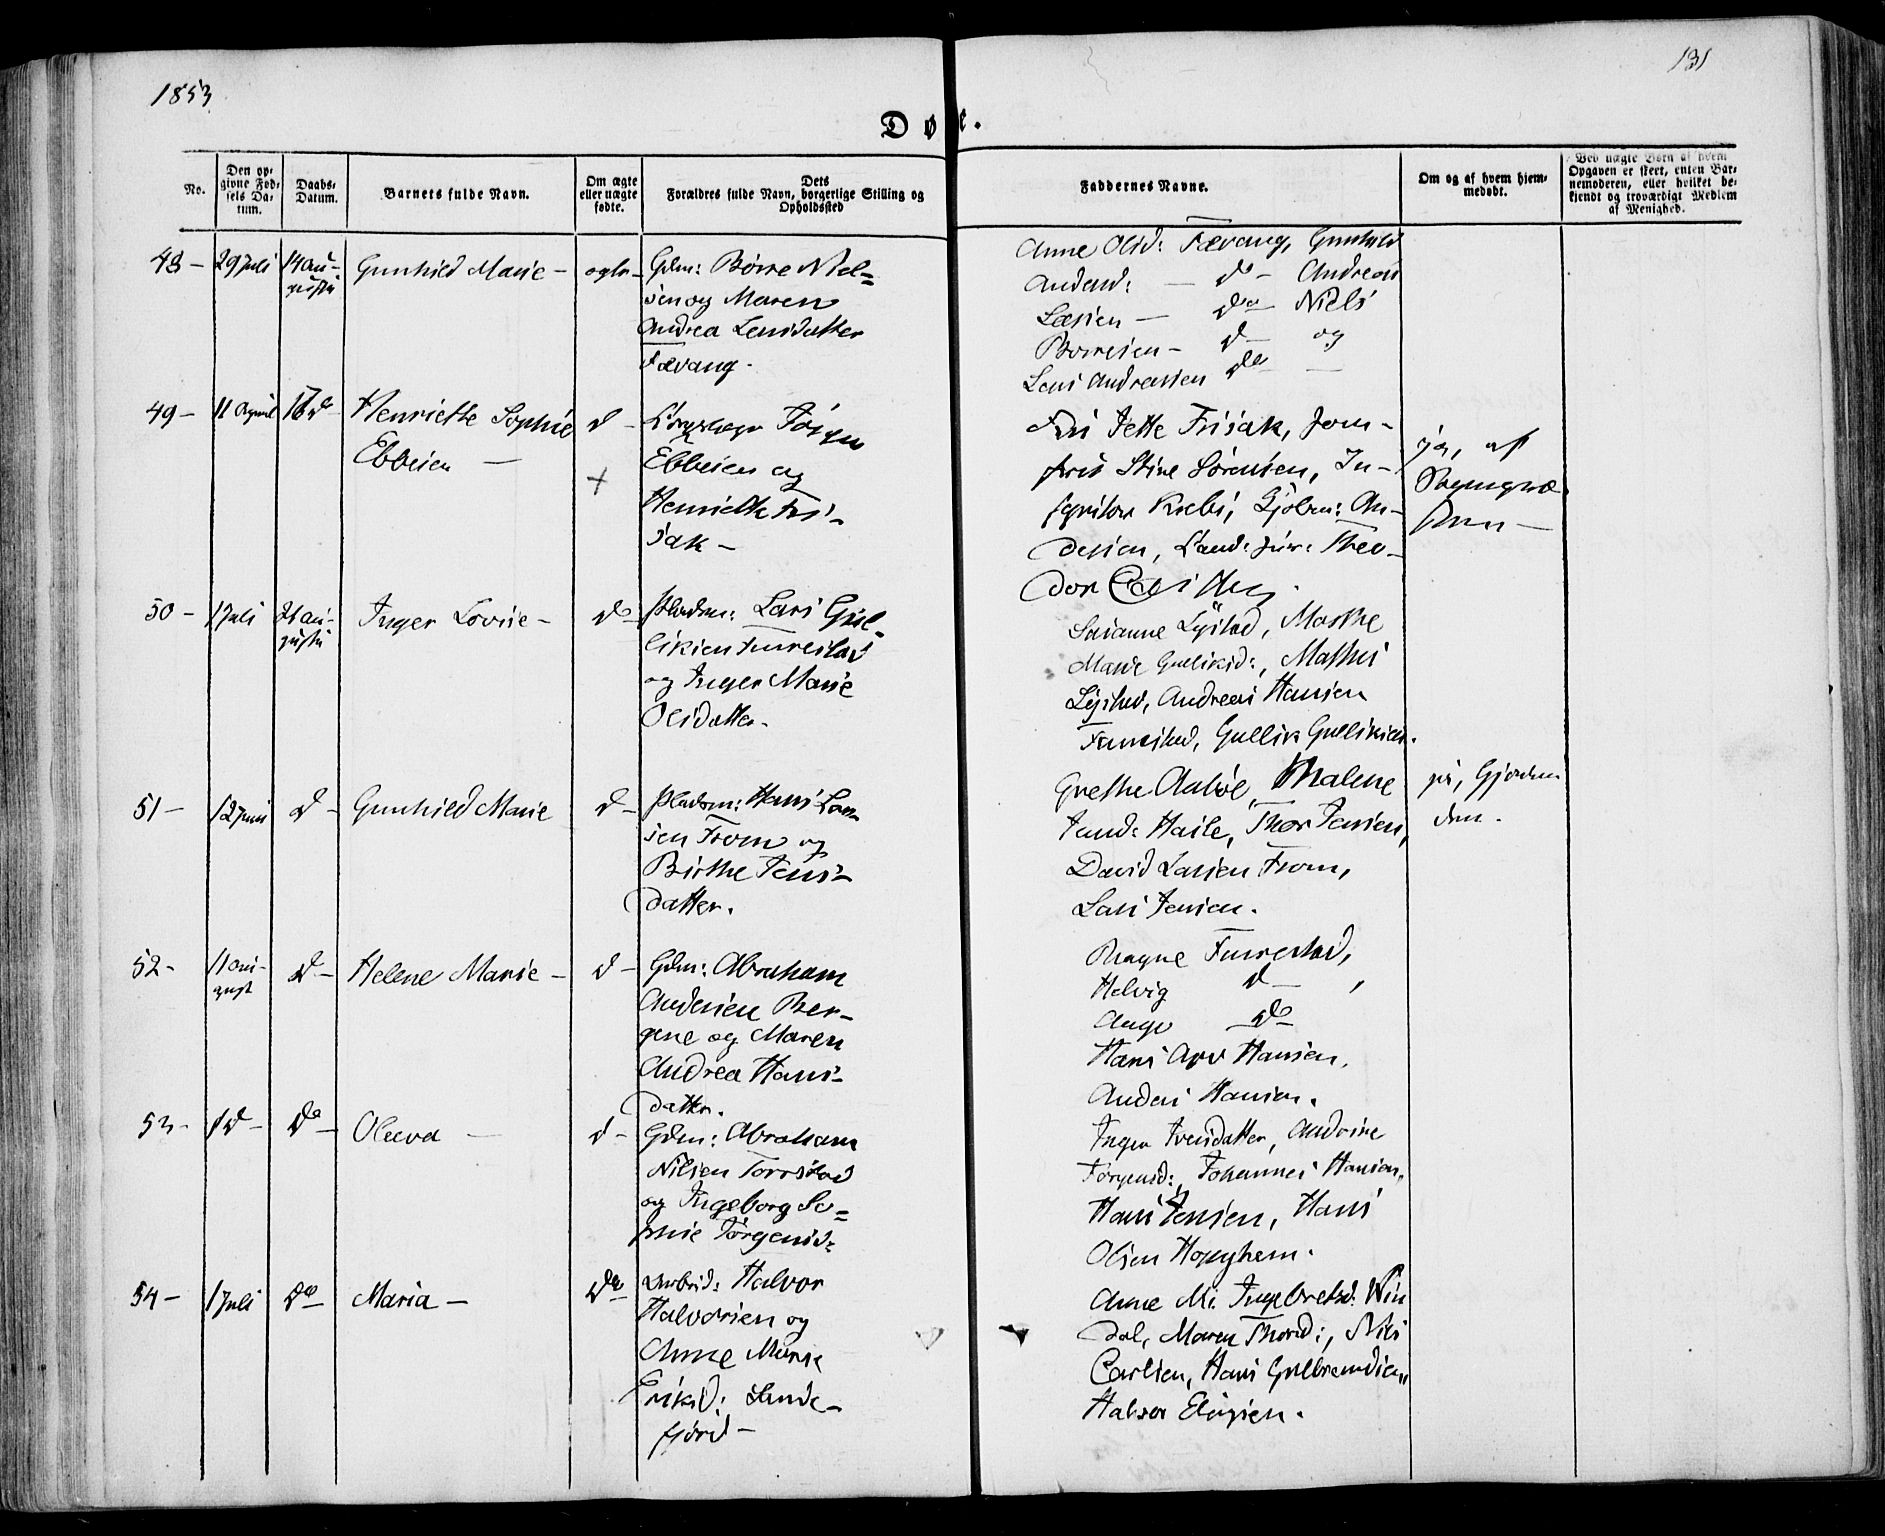 1853
131
Døbte.
No.
Den op-
givne Fød-
sels Da-
tum.
Daabs-
Datum.
Barnets fulde Navn.
Om ægte
eller uægte
fødte.
Dets
Forældres fulde Navn, borgerlige Stilling og
Opholdssted
Faddernes Navne.
Om og af hvem hjem-
medøbt.
Ved uægte Børn af hvem
Opgaven er skeet, enten Bar-
nemoderen, eller hvilket be-
kjendt og troværdigt Medlem
af Menighed.
48 - 29 Juli 14 Au-
gusti
Gunhild Marie - ægte -
Gdm: Börre Niel=
sen og Maren
Andrea Larsdatter
Fævang.
Anne Olsd: Fævang, Gunhild
Andersd: - do - Andreas
Larsen - do Niels
Borresen - d - og
Lars Andreasen do -
49 - 11 April 16 do
Henriette Sophie
Ebbesen -
d - +
Jörgen
Ebbesen og
Henriette Fri-
sak -
Fru Jette Frisak, Jom-
fru Stine Sörensen, In-
Krebs, Gjöbm: An-
dersen, Cand: jur: Theo-
dor
ja, af
-
50 - 1 Juli 21 Au-
gusti
Inger Lovise - do
Pladsm: Lars Gul-
liksen Furrestad
og Inger Marie
Olsdatter.
Susanne Lystad, Marthe
Marie Gulliksd:, Mathis
Lystad, Andreas Hansen
Furrestad, Gullik Gulliksen.
51 - 12 Juni d -
Gunhild Marie d -
Pladsm: Hans Lar-
sen From og
Birthe Jens-
datter.
Grethe Aaböe, Malene
Hasle, Thor Jensen,
David Larsen From,
Lars Jensen.
ja, Gjordem
dren.
52 - 11 Au-
gust
d -
Helene Marie - d -
Gdm: Abraham
Andersen Ber-
gene og Maren
Andrea Hans-
datter.
Ragne Furrestad,
Helvig d - ,
Aage do
Hans Arv Hansen,
Anders Hansen.
53 - 1 d - do
Oleeva - d -
Gdm: Abraham
Nilsen Torrstad
og Ingeborg So=
phie Jörgensd:
Inger Iversdatter, Andrine
Jörgensd:, Johannes Hansen,
Hans Jensen, Hans
Olsen Hoppghem.
54 - 1 Juli do
Maria - do
Arbeid: Halvor
Halvorsen og
Anne Marie
Eriksd: Sande-
fjord -
Anne M. Ingebretsd: Win
dal, Maren Thorsd:, Nils
Carlsen, Hans Gulbrandsen,
Halvor